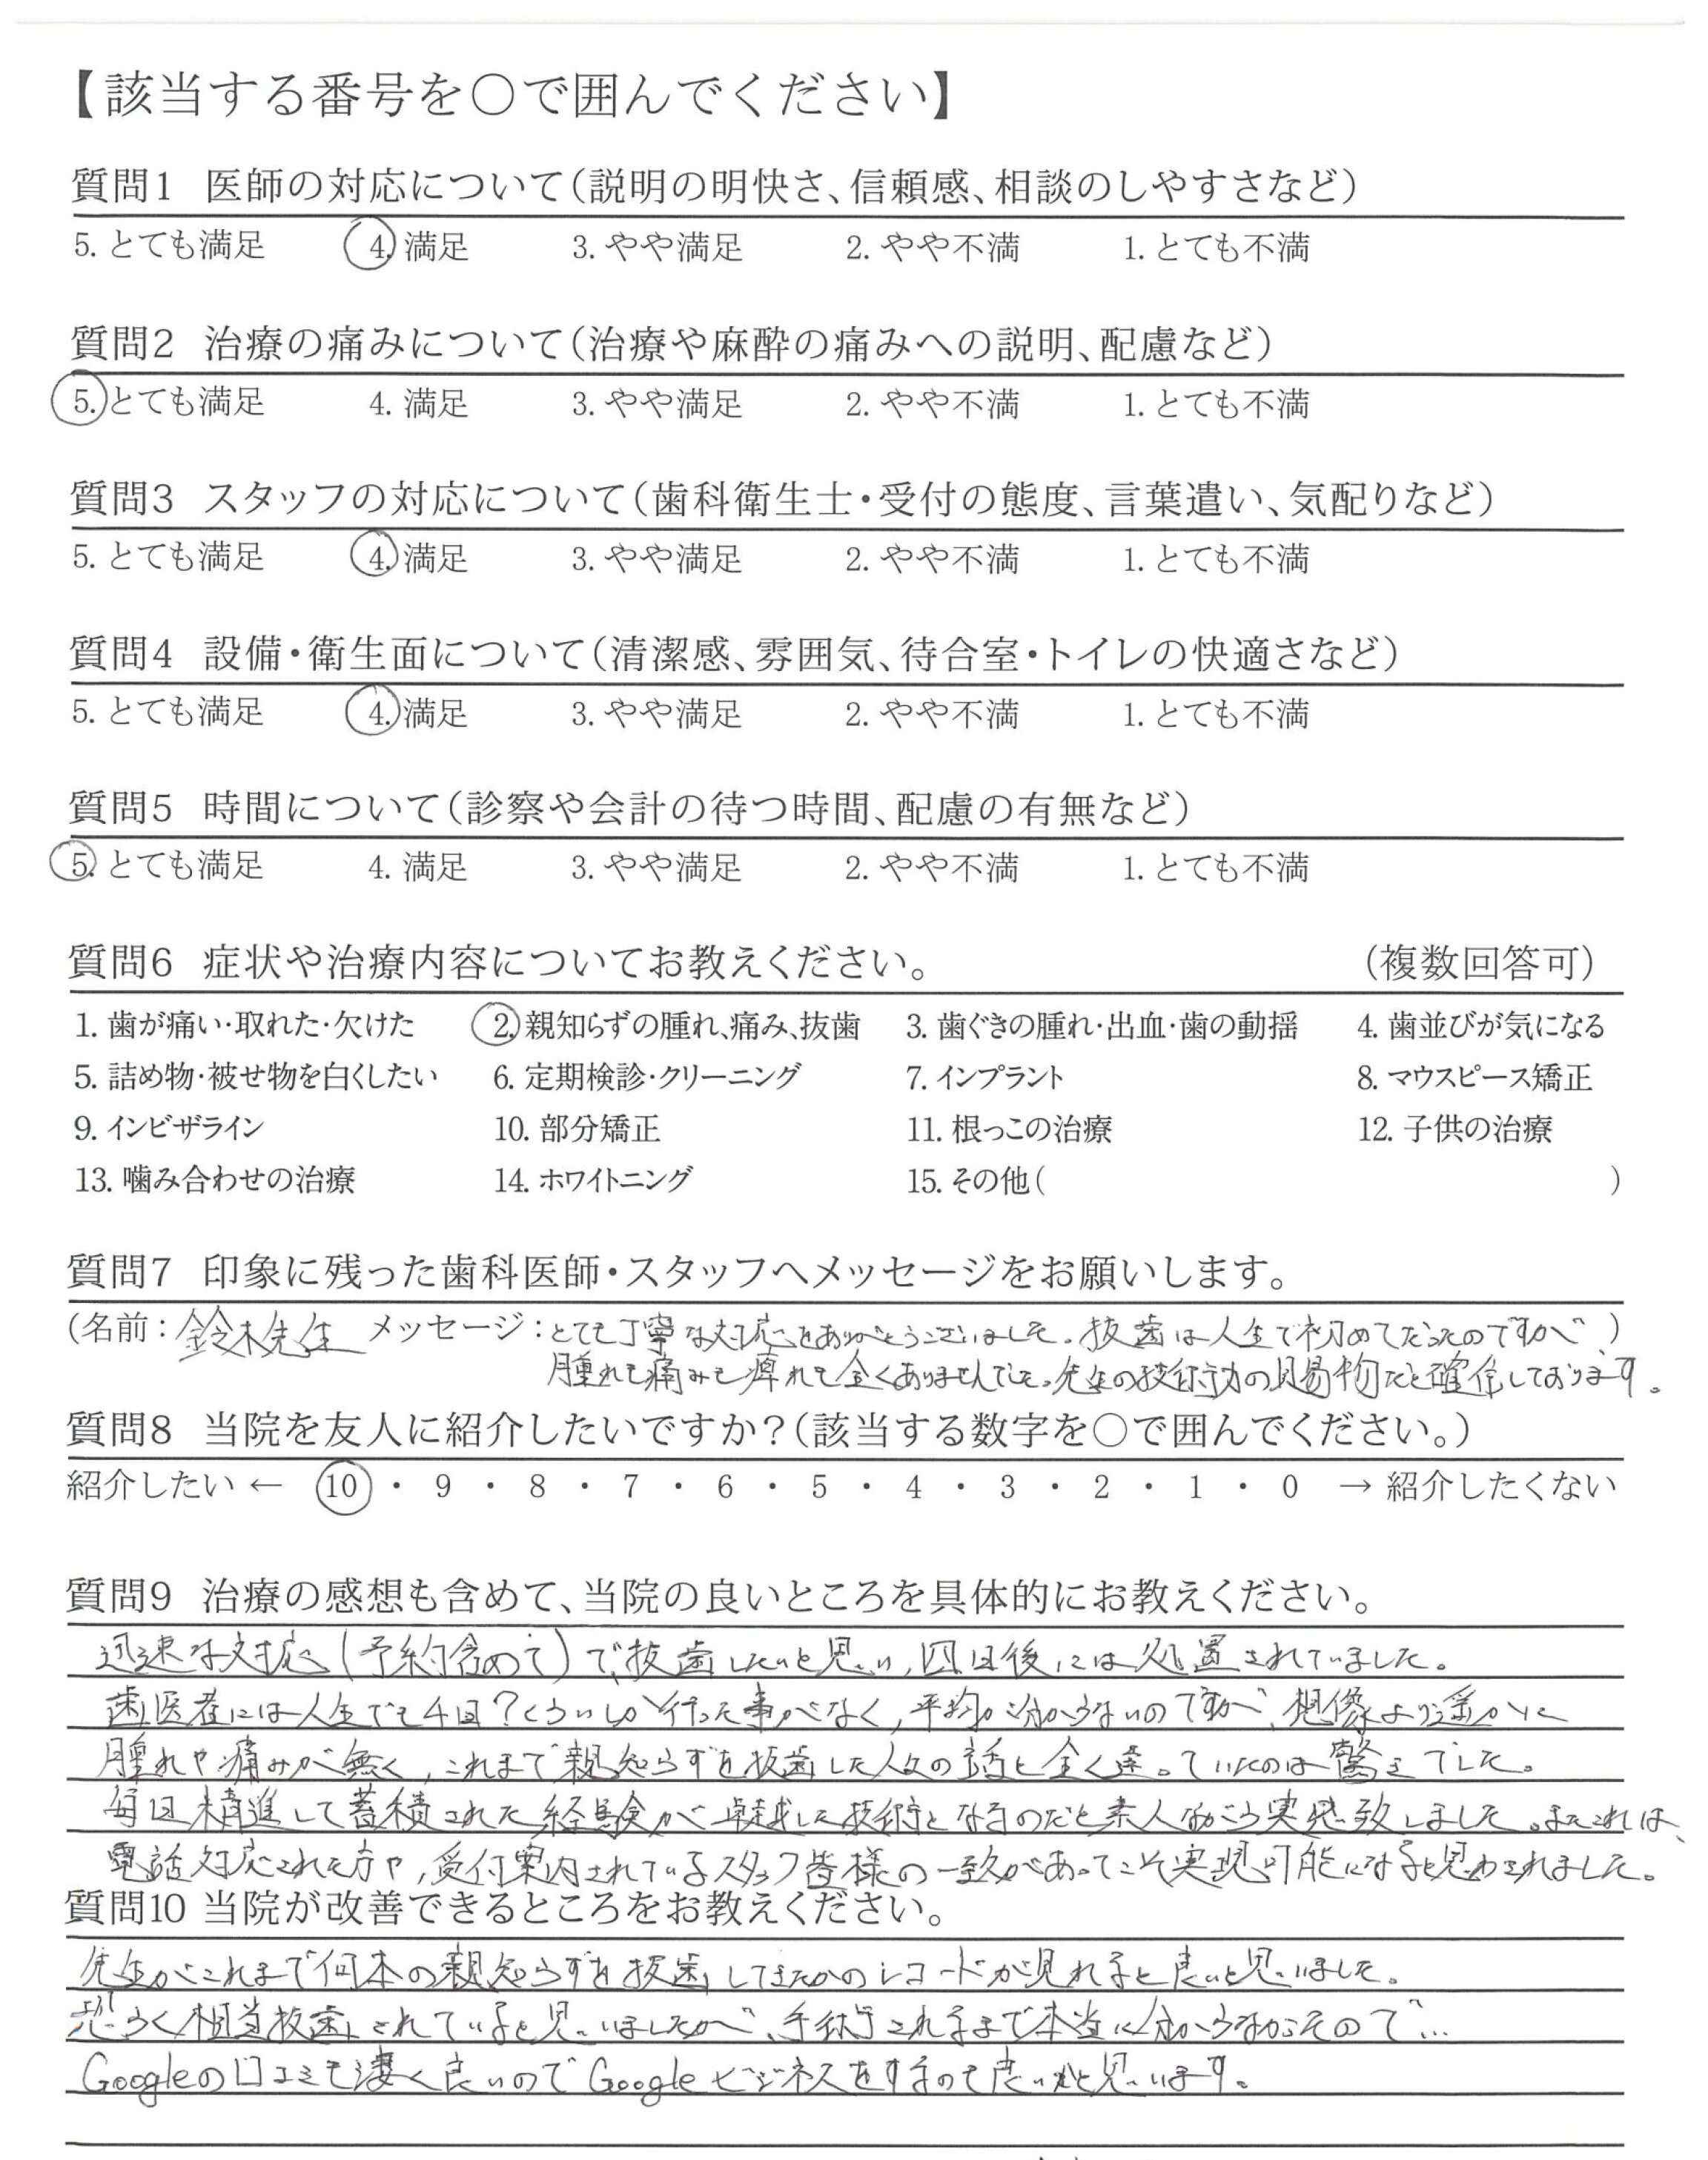 【該当する番号を○で囲んでください】
質問1 医師の対応について(説明の明快さ、信頼感、相談のしやすさなど)
5. とても満足 4. 満足 3. やや満足 2. やや不満 1. とても不満
質問2 治療の痛みについて(治療や麻酔の痛みへの説明、配慮など)
5. とても満足 4. 満足 3. やや満足 2. やや不満 1. とても不満
質問3 スタッフの対応について(歯科衛生士・受付の態度、言葉遣い、気配りなど)
5. とても満足 4. 満足 3. やや満足 2. やや不満 1. とても不満
質問4 設備・衛生面について(清潔感、雰囲気、待合室・トイレの快適さなど)
5. とても満足 4. 満足 3. やや満足 2. やや不満 1. とても不満
質問5 時間について(診察や会計の待つ時間、配慮の有無など)
5. とても満足 4. 満足 3. やや満足 2. やや不満 1. とても不満
質問6 症状や治療内容についてお教えください。 (複数回答可)
1. 歯が痛い・取れた・欠けた 2. 親知らずの腫れ、痛み、抜歯 3. 歯ぐきの腫れ・出血・歯の動揺 4. 歯並びが気になる
5. 詰め物・被せ物を白くしたい 6. 定期検診・クリーニング 7. インプラント 8. マウスピース矯正
9. インビザライン 10. 部分矯正 11. 根っこの治療 12. 子供の治療
13. 噛み合わせの治療 14. ホワイトニング 15. その他( )
質問7 印象に残った歯科医師・スタッフへメッセージをお願いします。
(名前:鈴木先生 メッセージ:とても丁寧な対応をありがとうございました。抜歯は人生で初めてだったのですが、)
腫れも痛みも痺れも全くありませんでした。先生の技術力の賜物だと確信しております。
質問8 当院を友人に紹介したいですか?(該当する数字を○で囲んでください。)
紹介したい ← 10 ・ 9 ・ 8 ・ 7 ・ 6 ・ 5 ・ 4 ・ 3 ・ 2 ・ 1 ・ 0 → 紹介したくない
質問9 治療の感想も含めて、当院の良いところを具体的にお教えください。
迅速な対応(予約含めて)で、抜歯したいと思い、四日後には処置されていました。
歯医者には人生でも4回?くらいしか行った事がなく、平均が分からないのですが、想像より遥かに
腫れや痛みが無く、これまで親知らずを抜歯した人々の話と全く違っていたのは驚きでした。
毎日精進して蓄積された経験が卓越した技術となるのだと素人ながら実感致しました。またこれは、
電話対応された方や、受付案内されているスタッフ皆様の一致があってこそ実現可能になると思わされました。
質問10 当院が改善できるところをお教えください。
先生がこれまで何本の親知らずを抜歯してきたかのレコードが見れると良いと思いました。
恐らく相当抜歯されていると思いましたが、手術されるまで本当に分からなかったので…
Googleの口コミも凄く良いのでGoogleビジネスをするのも良いかと思います。